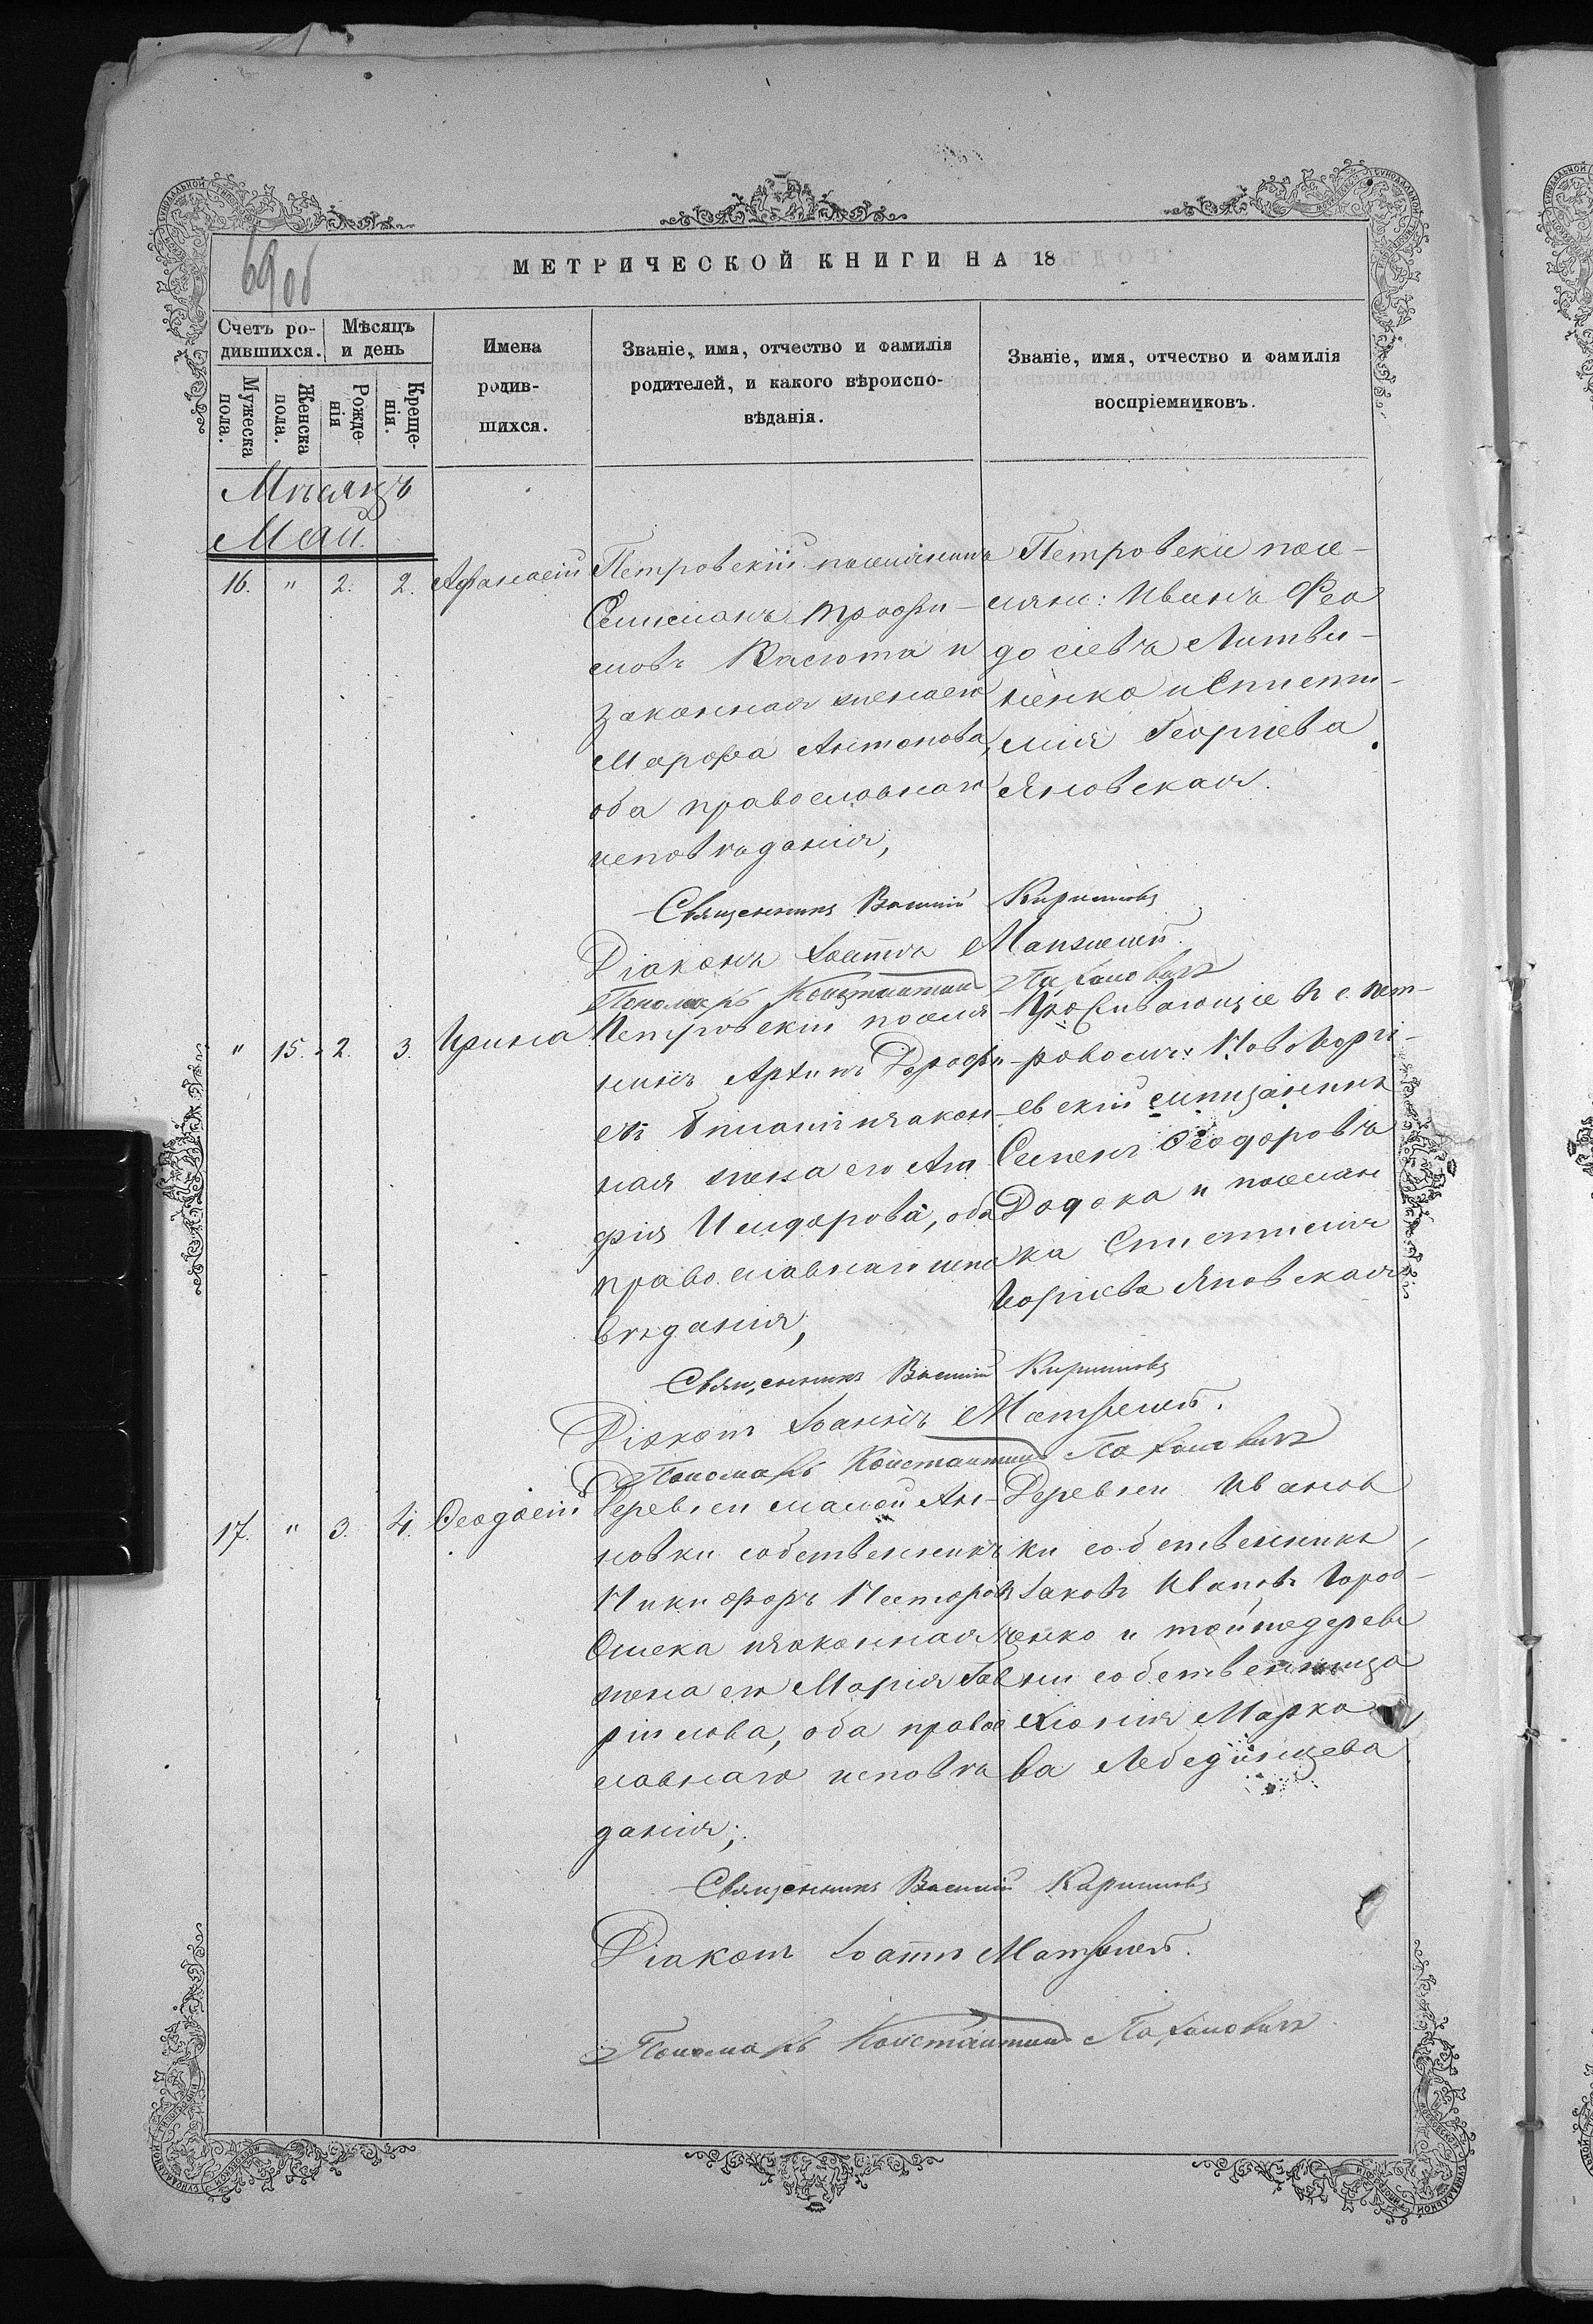 69 об
МЕТРИЧЕСКОЙ КНИГИ НА 18
Счетъ ро-
дившихся.
Мѣсяцъ
и день
Мужеска
пола.
Женска
пола.
Рожде-
нія
Креще-
нія.
Имена
родив-
шихся.
Званіе, имя, отчество и фамилія
родителей, и какого вѣроиспо-
вѣданія.
Званіе, имя, отчество и фамилія
воспріемниковъ.
Мѣсяцъ
Май.
16. " 2. 2. Афанасій
Петровскій поселянинъ
Филимонъ Трофи-
мовъ Касюта и
законная жена его
Марфа Антонова,
оба православнаго
исповѣданія;
Петровскіе посе-
ляне: Иванъ Фео
досіевъ Литви-
ненко и Еписти-
мія Георгіева
Яновская.
Священникъ Василій Кирилловъ
Діаконъ Іоаннъ
Пономарь Константинъ Пахаловичъ
" 15. 2. 3. Ирина
Петровскій поселя
нинъ Архипъ Дорофе
евъ и закон-
ная жена его Ага
фія Исидорова, оба
православнаго испо
вѣданія;
Проживающіе въ с. Пет-
ровомъ: Новогеоргі-
евскій мѣщанинъ
Семенъ Ѳеодоровъ
Додока и поселян
ка Епистимія
Георгіева Яновская
Священникъ Василій Кирилловъ
Діаконъ Іоаннъ
Пономарь Константинъ Пахаловичъ
17. " 3. 4. Ѳеодосій
Деревни малой Ан-
новки собственникъ
Никифоръ Несторовъ
Омека и законная
жена его Марія Гав
ріилова, оба правос
лавнаго исповѣ
данія;
Деревни Иванов
ки собственникъ
Іаковъ Ивановъ Город-
ченко и той же дерев
ни собственница
Марко
ва Лебединцева
Священникъ Василій Кирилловъ
Діаконъ Іоаннъ
Пономарь Константинъ Пахаловичъ